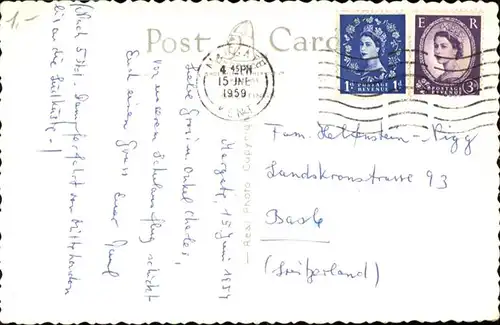 1.-
Post Card
MARGATE
4 15PM
15 JNE
1959
KENT
POSTAGE
REVENUE
1D 1D
E R
POSTAGE
REVENUE
3D
Real Photo
Margate, 15. Juni 1959
Liebe Onkel Charles,
Von unserem Schulausflug schickt
Euch einen Gruss Euer Paul
(Nach 5 Std. Dampferfahrt von London
an die Südküste!)
Fam. Hallenstein-Rigg
Landskronstrasse 93
Basle
(Switzerland)